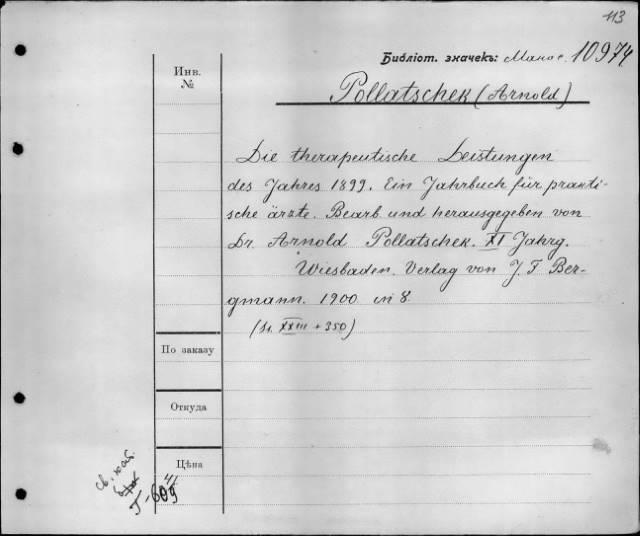 113
Библіот. значекъ: 10974
Инв.
№
Pollatschek (Arnold)
Die therapeutische Leistungen
des Jahres 1899. Ein Jahrbuch für prakti-
sche ärzte. Bearb. und herausgegeben von
Dr. Arnold Pollatschek. XI Jahrg.
Wiesbaden. Verlag von J. F. Ber-
gmann. 1900 in 8.
(St. XXIII + 350)
По заказу
Откуда
Цѣна